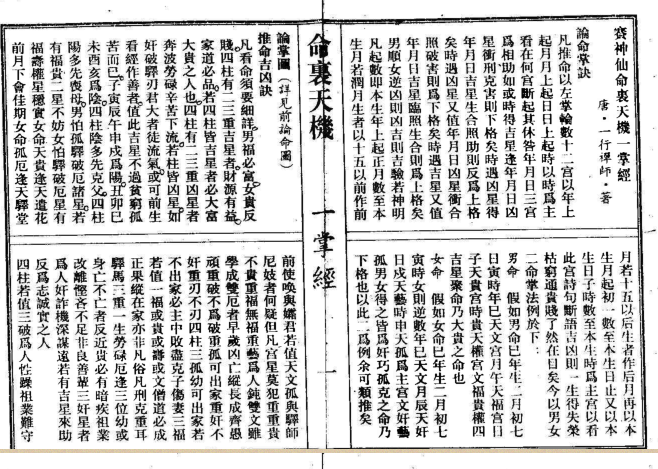 神仙命裏天機一掌經
唐・一行禪師・著
論命掌訣
凡推命以左掌輪數十二宮以年上
起月月上起日日上起時以時爲主
看在何宮斷起其休咎年月日三宮
爲相助如或時得吉星逢年月日凶
星衝刑克害則下格矣時遇凶星得
年月日吉星生合照助則反爲上格
矣時遇凶星又值年月日凶星衝合
照破害則爲下格矣時遇吉星又值
年月日吉星臨照生合則爲上格矣
男順女逆凶則凶吉則吉驗若神明
凡起數即本生年上起正月數至本
生月若潤月生者以十五以前作前
月若十五以后生者作后月再以本
生月起初一數至本生日止又以本
生日子時數至本生時爲主宮以看
此宮詩句斷語吉凶則一生得失榮
枯窮通貴賤了然在目矣今以男女
二命掌法例於下：
男命　假如男命巳年生二月初七
日寅時年巳天文宮月午天福宮日
子天貴宮時貴天權宮文福貴權四
吉星聚命乃大貴之命也
女命　假如女命巳年生二月初七
寅時女則逆數年巳天文月辰天奸
日戍天藝時申天孤爲主宮文奸藝
孤男女得之皆爲奸巧孤克之命乃
下格也以此二爲例余可類推矣
命裏天機　一掌經　一
論掌圖（詳見前論命圖）
推命吉凶訣
凡看命須要細詳男福必富女貴反
賤四柱有二三重吉星者財源有益
家道必品若四柱皆吉星者必大富
大貴人也四柱有二三重凶星者
奔波勞碌辛苦下流若柱皆凶星如
奸破驛刃君大者徒流氣或可前生
看經作善者值此吉星不過貧窮孤
苦而巳子寅辰午申戍爲陽丑卯巳
未酉亥爲陰四柱陰多先克父四柱
陽多先喪母男怕孤驛破厄諸星若
有福貴二星不妨女怕驛破厄星有
福壽權星穩實女命天貴逢天遣花
前月下會佳期女命孤厄逢天驛堂
前使喚與孀君若值天文孤與驛師
尼妓者何疑但凡宮星莫犯重重貴
不貴重福無福重藝爲人鈍雙文雖
學成雙厄者早歲凶亡縱長成齊愚
頑重破不爲破重孤可出家重奸不
奸重刃不刃四柱三孤幼可出家若
不出家必主中敗盡克子傷妻三福
若值一福或貴或壽或文僧道必成
正果縱在家亦非凡俗凡刑克重耳
驛馬三重一生勞碌厄逢三位幼或
身亡不亡者反近貴必有暗疾祖業
改離慳吝不足非良善輩三奸星者
爲人奸詐機深謀遠若有吉星來助
反爲志誠實之人
四柱若值三破爲人性躁祖業難守